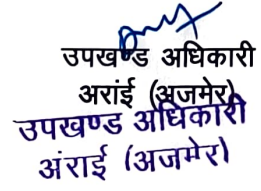 उपखण्ड अधिकारी
अरांई (अजमेर)
उपखण्ड अधिकारी
अंराई (अजमेर)